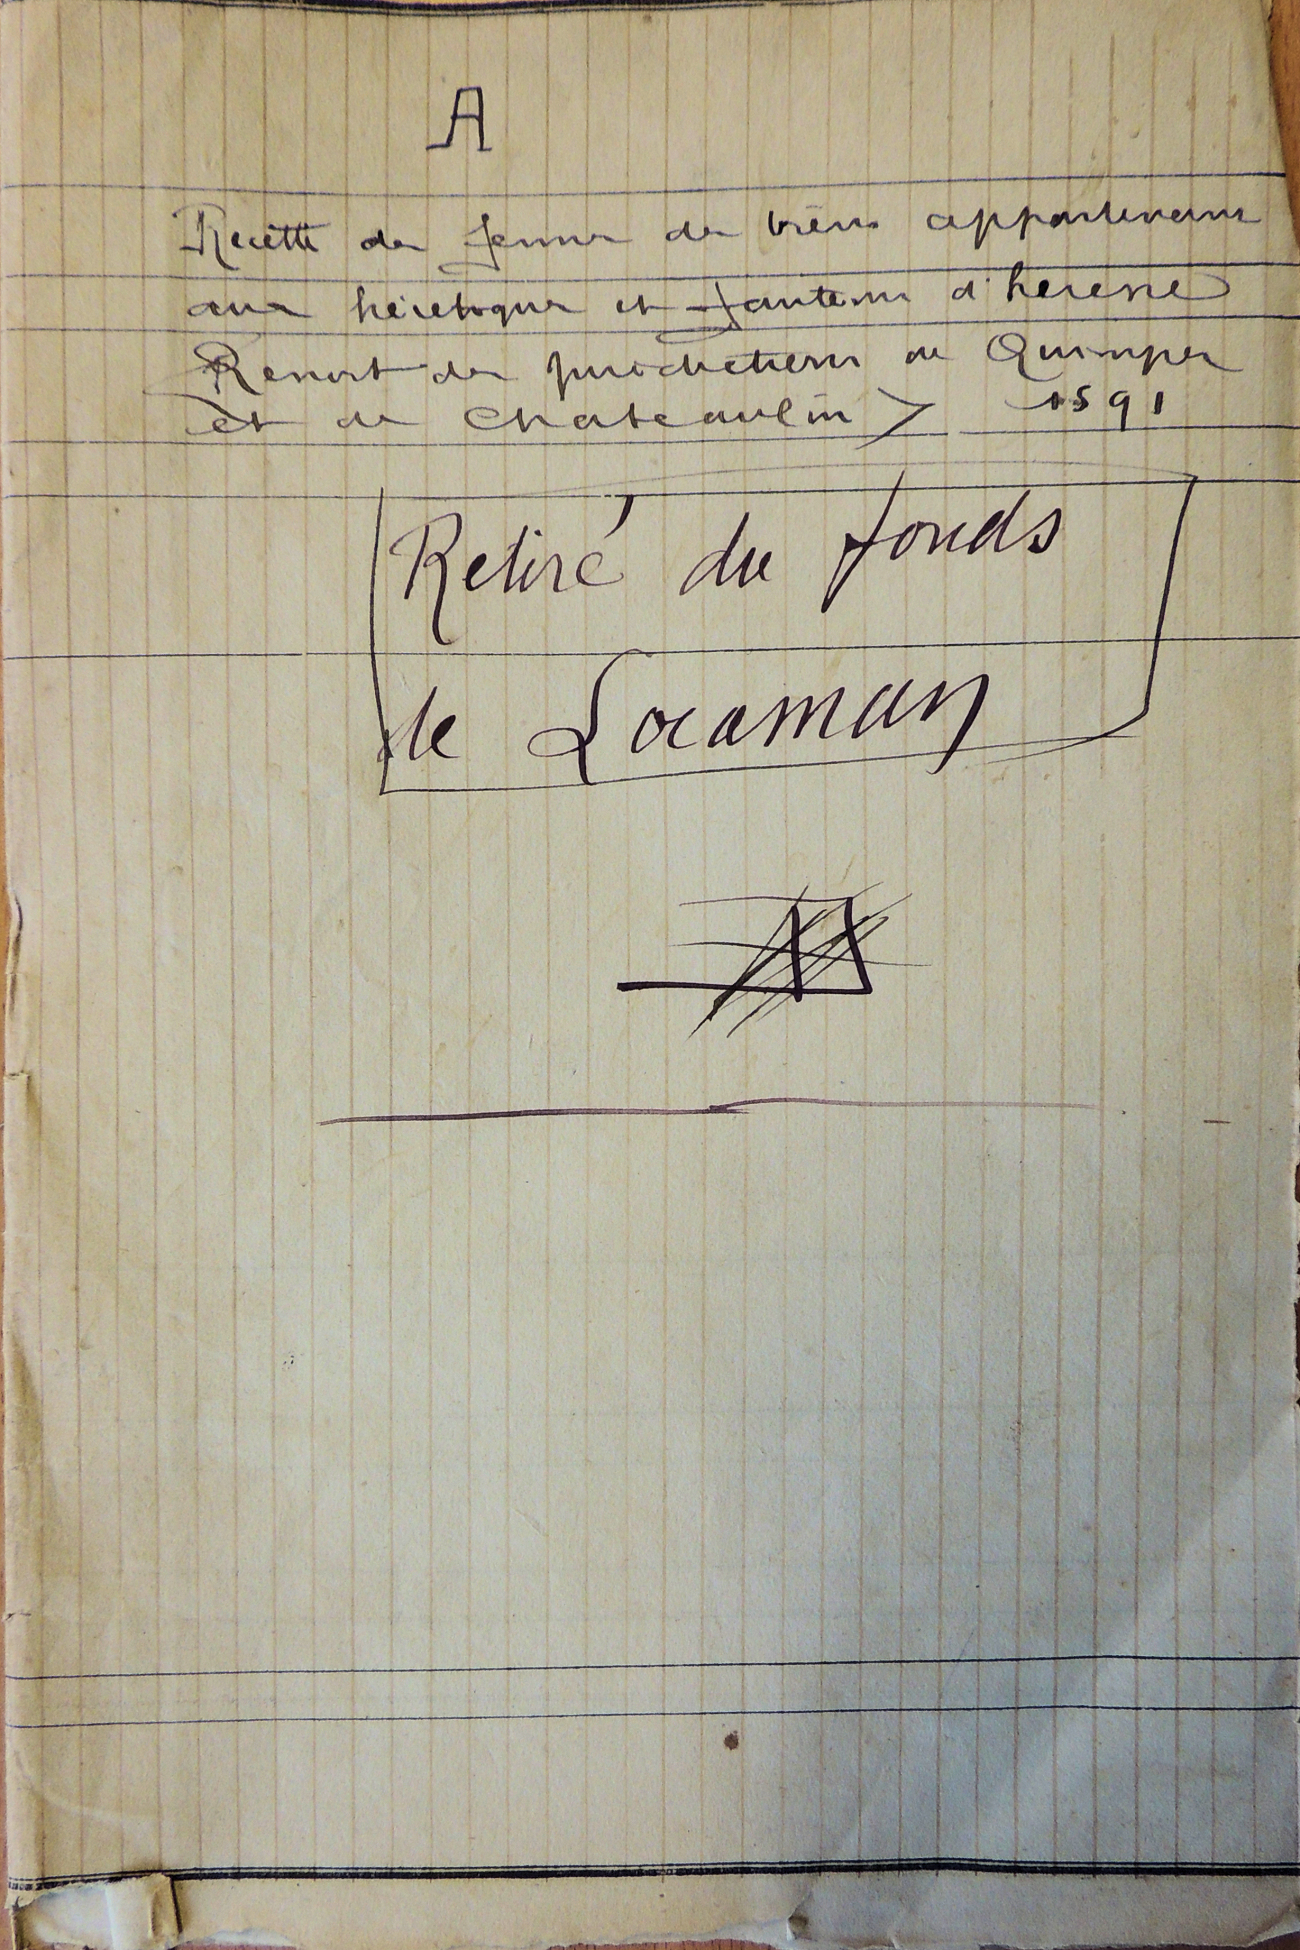 A
Recette des fermes des biens appartenans
aux héretiques et fauteurs d'héresie
Ressort des juridictions de Quimper
et de Chateaulin 1591
Retiré du fonds
de Locaman